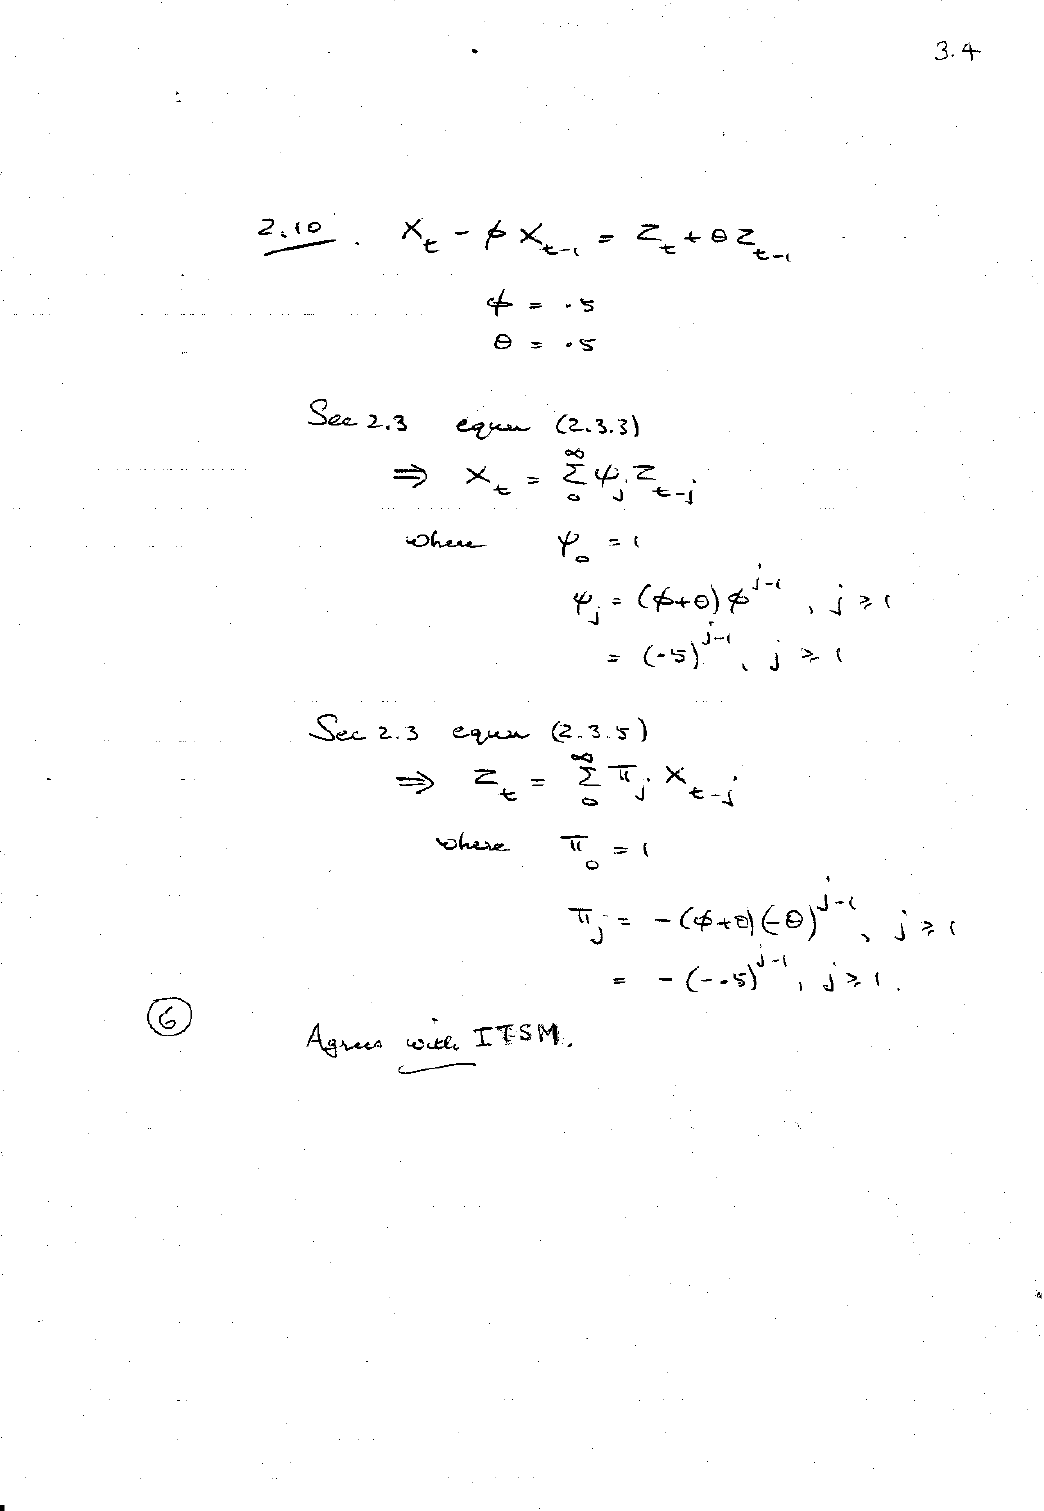 3.4
2.10. X_t - φ X_{t-1} = Z_t + θ Z_{t-1}
φ = .5
θ = .5
Sec 2.3 equn (2.3.3)
⇒ X_t = Σ_0^∞ ψ_j Z_{t-j}
where ψ_0 = 1
ψ_j = (φ+θ) φ^{j-1}, j ≥ 1
= (.5)^{j-1}, j ≥ 1
Sec 2.3 equn (2.3.5)
⇒ Z_t = Σ_0^∞ π_j X_{t-j}
where π_0 = 1
π_j = -(φ+θ)(-θ)^{j-1}, j ≥ 1
= -(-.5)^{j-1}, j ≥ 1.
6
Agrees with ITSM.